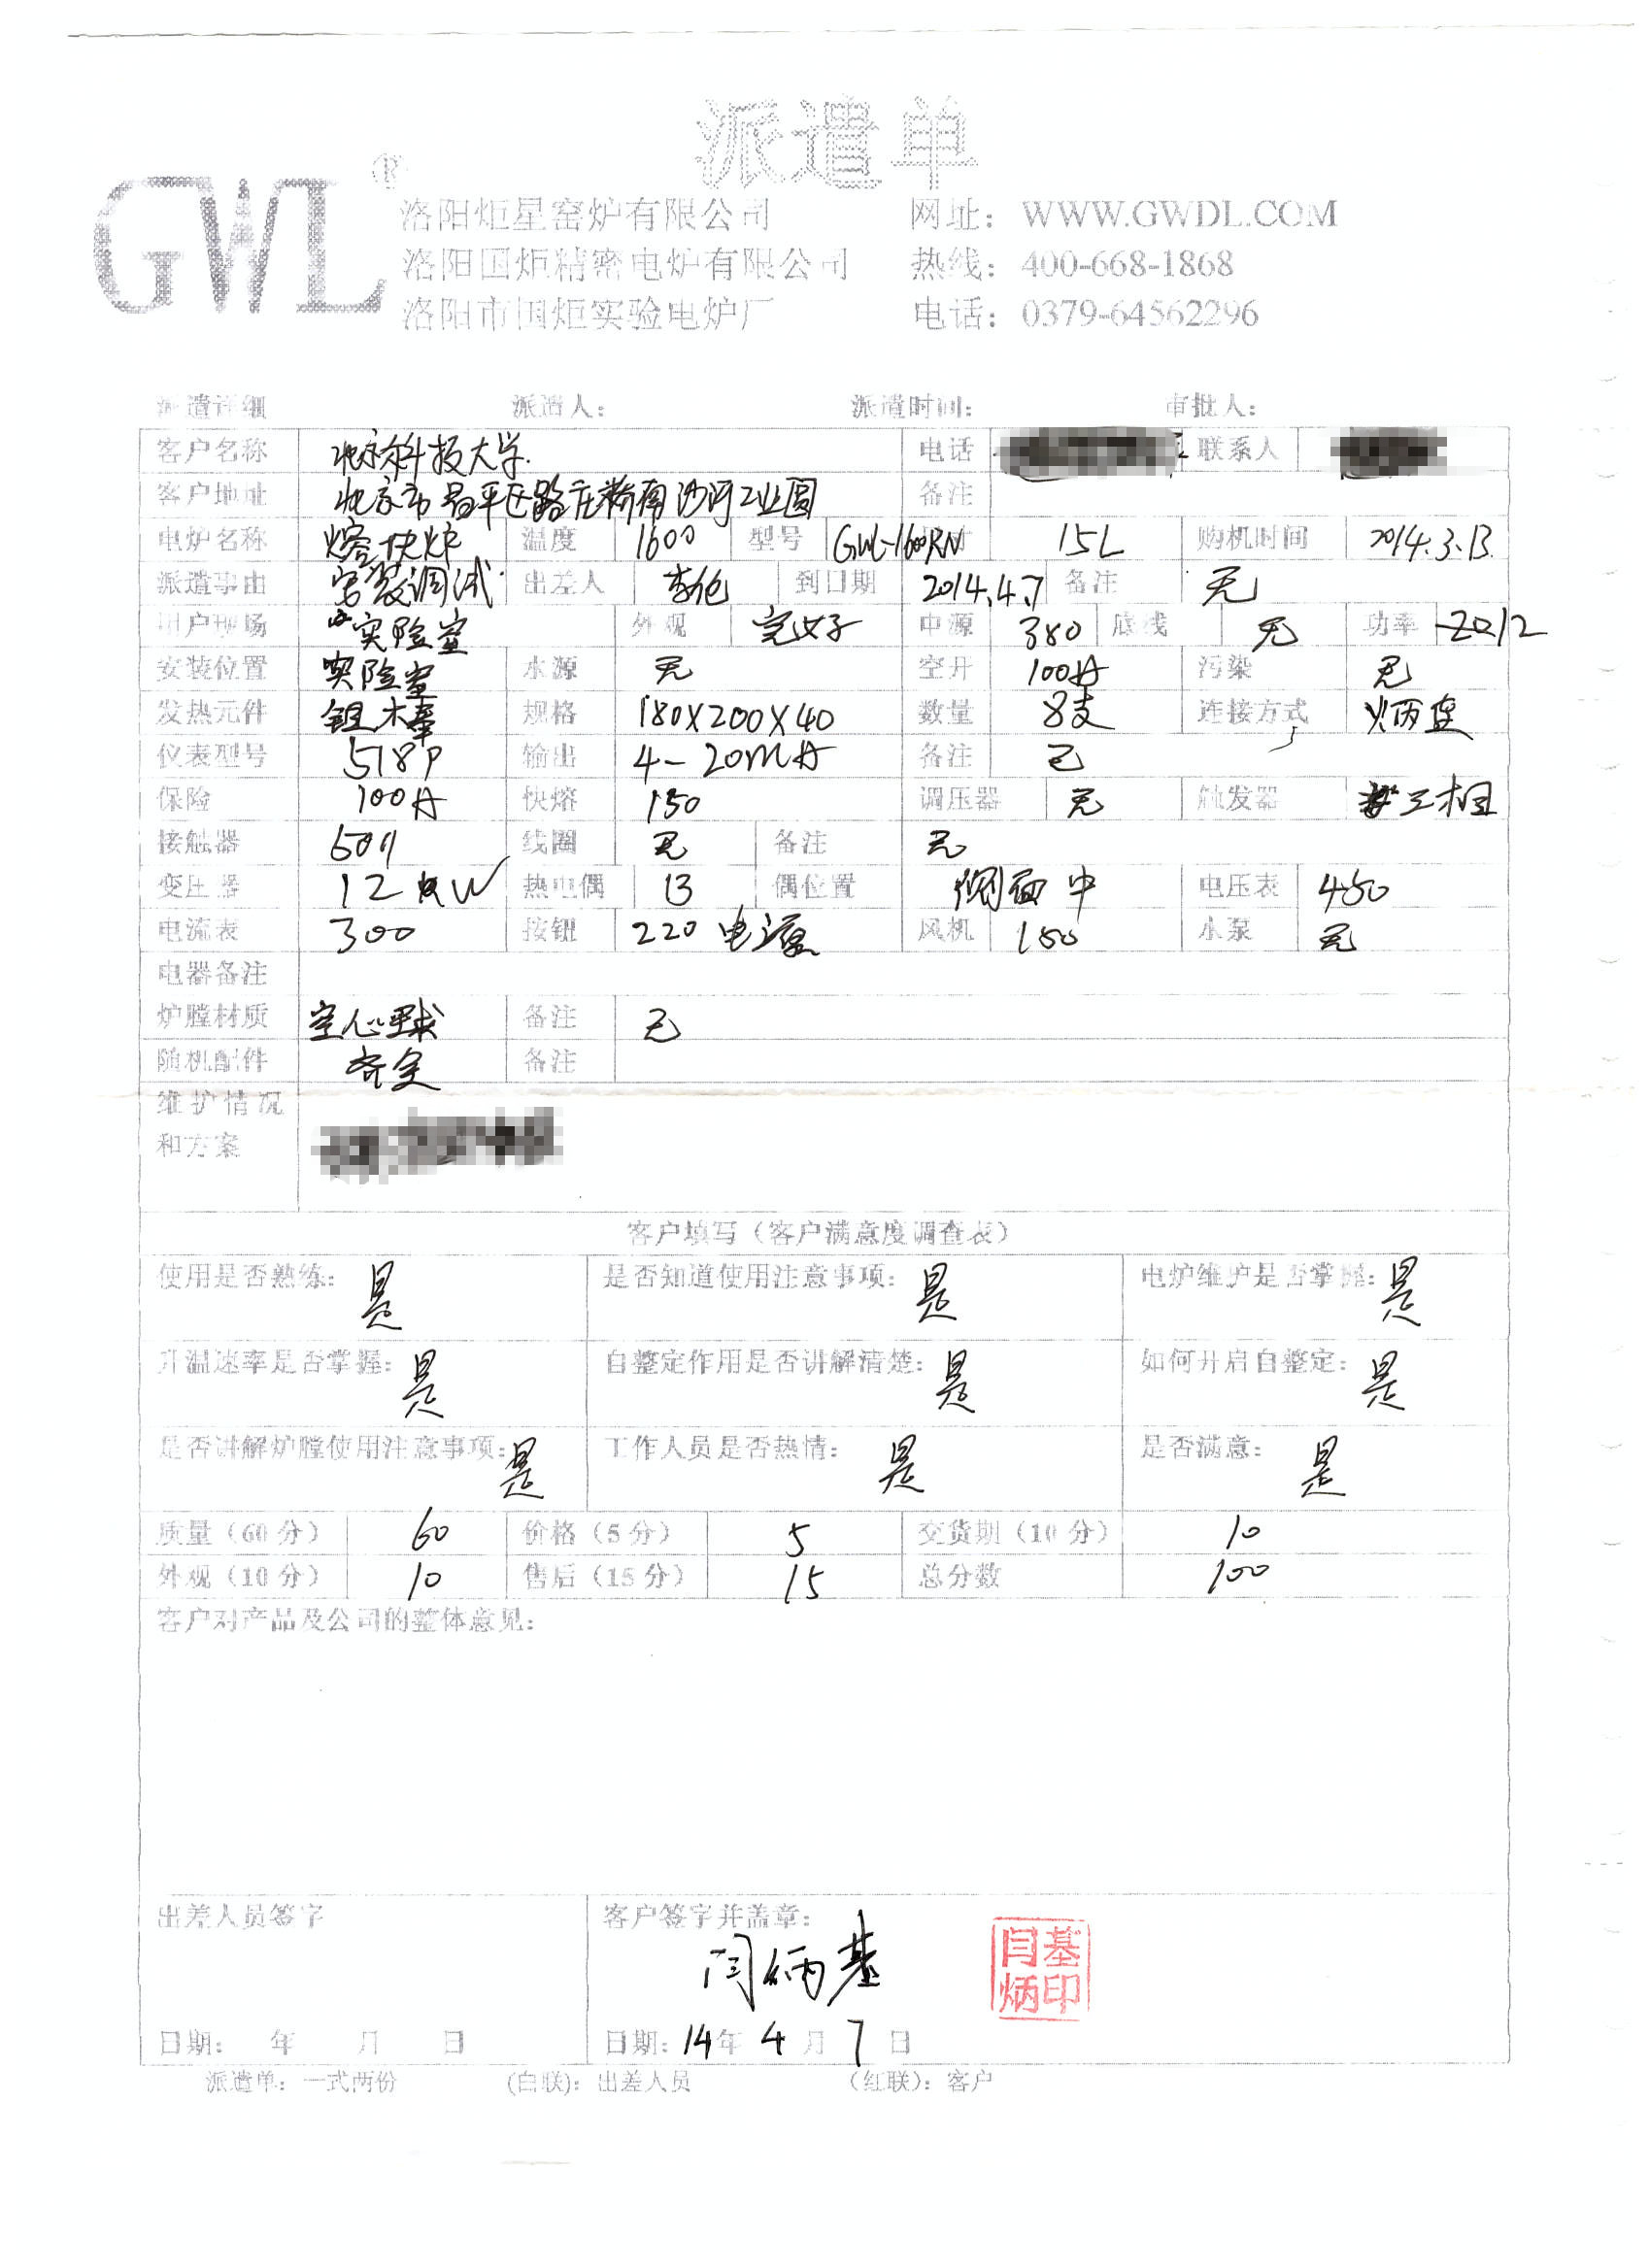 派遣单
GWL®
洛阳炬星窑炉有限公司 网址：WWW.GWDL.COM
洛阳国炬精密电炉有限公司 热线：400-668-1868
洛阳市国炬实验电炉厂 电话：0379-64562296
派遣详细 派遣人： 派遣时间： 审批人：
客户名称 北京科技大学 电话 联系人
客户地址 北京市昌平区路庄桥南沙河工业园 备注
电炉名称 熔块炉 温度 1600 型号 GWL-1600RN 15L 购机时间 2014.3.13
派遣事由 安装调试 出差人 到日期 2014.4.7 备注 无
用户现场 实验室 外观 完好 电源 380 底线 无 功率 12
安装位置 实验室 水源 无 空开 100A 污染 无
发热元件 钼棒 规格 180X200X40 数量 8支 连接方式
仪表型号 518P 输出 4-20mA 备注 无
保险 100A 快熔 150 调压器 无 触发器 三相
接触器 线圈 无 备注 无
变压器 12KW 热电偶 B 偶位置 中 电压表 450
电流表 300 按钮 220 电源 风机 150 水泵 无
电器备注
炉膛材质 空心球 备注 无
随机配件 齐全 备注
维护情况
和方案
客户填写（客户满意度调查表）
使用是否熟练：是 是否知道使用注意事项：是 电炉维护是否掌握：是
升温速率是否掌握：是 自整定作用是否讲解清楚：是 如何开启自整定：是
是否讲解炉膛使用注意事项：是 工作人员是否热情：是 是否满意：是
质量（60分） 60 价格（5分） 5 交货期（10分） 10
外观（10分） 10 售后（15分） 15 总分数 100
客户对产品及公司的整体意见：
出差人员签字 客户签字并盖章：
闫炳基 闫炳基印
日期： 年 月 日 日期：14年4月7日
派遣单：一式两份 （白联）：出差人员 （红联）：客户